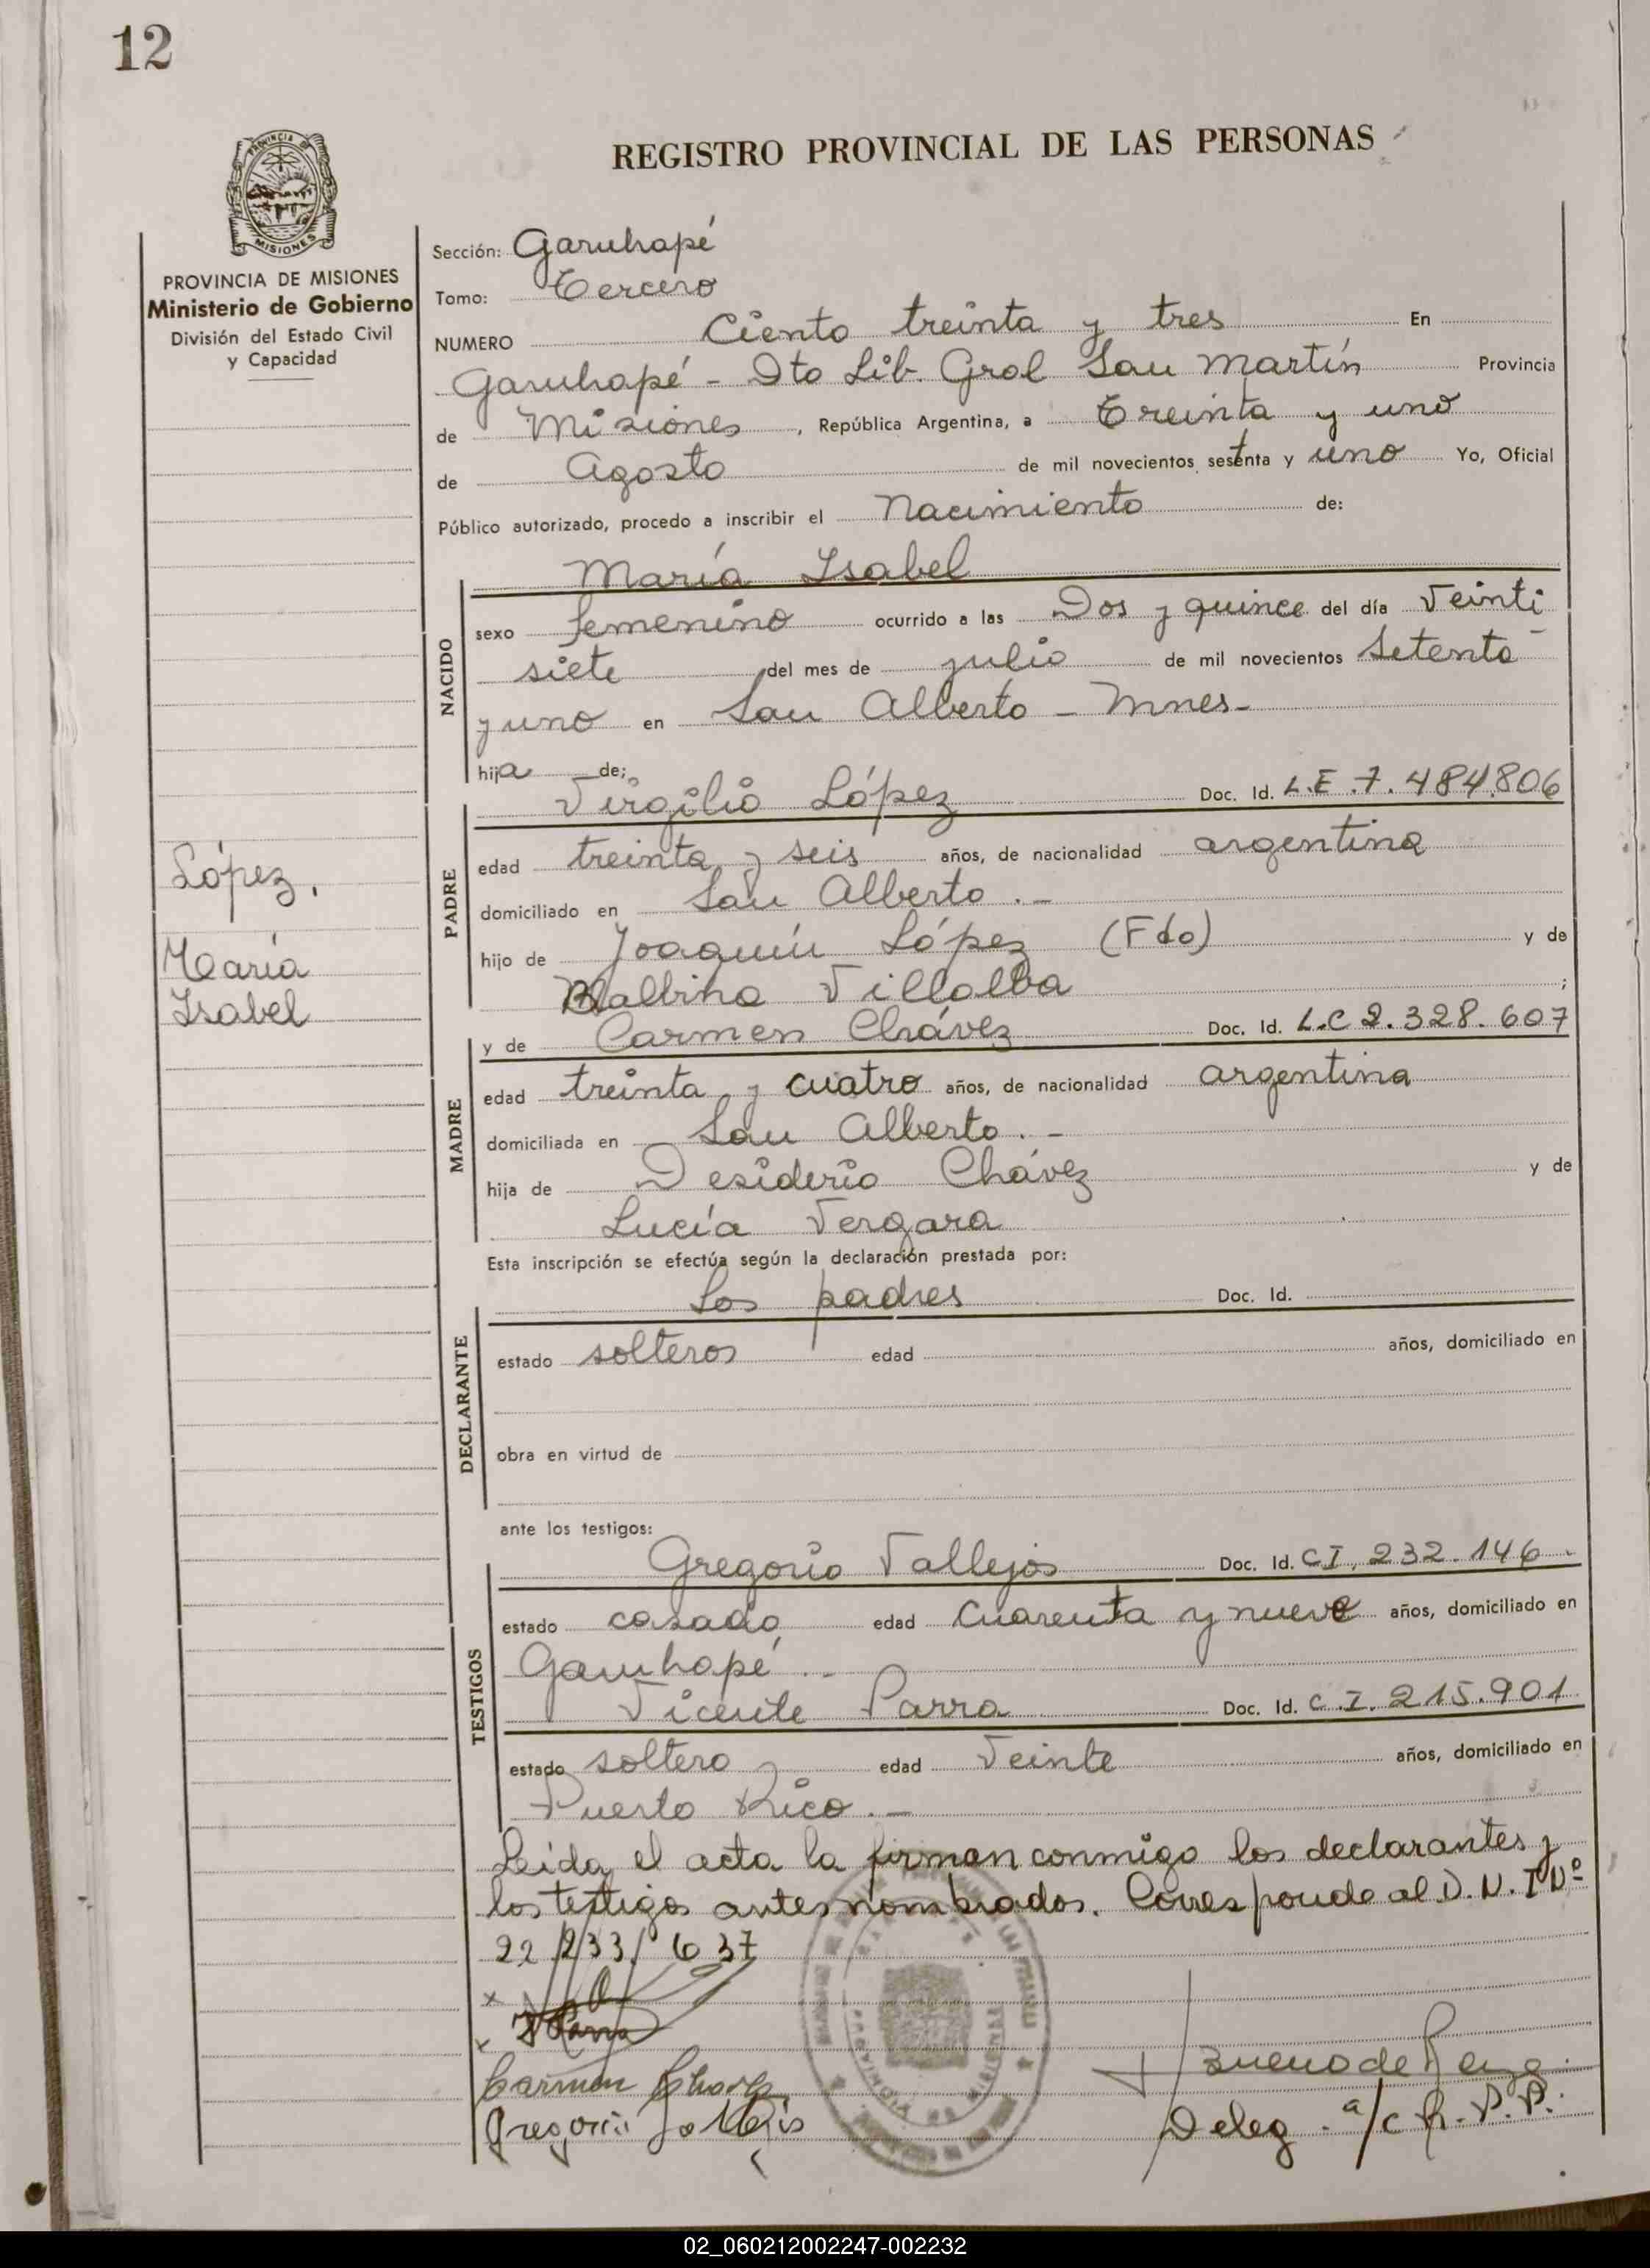 12
PROVINCIA
MISIONES
PROVINCIA DE MISIONES
Ministerio de Gobierno
División del Estado Civil
y Capacidad
López.
María
Isabel
REGISTRO PROVINCIAL DE LAS PERSONAS
Sección: Garuhapé
Tomo: Tercero
NUMERO Ciento treinta y tres En
Garuhapé - Dto Lib. Gral San Martín Provincia
de Misiones, República Argentina, a Treinta y uno
de Agosto de mil novecientos setenta y uno Yo, Oficial
Público autorizado, procedo a inscribir el Nacimiento de:
María Isabel
NACIDO
sexo femenino ocurrido a las Dos y quince del día Veinti
siete del mes de julio de mil novecientos Setenta
y uno en San Alberto - Mnes-
hija de:
PADRE
Virgilio López Doc. Id. L.E. 7.484.806
edad treinta y seis años, de nacionalidad argentina
domiciliado en San Alberto.-
hijo de Joaquín López (Fdo) y de
Balbina Villalba ;
MADRE
y de Carmen Chávez Doc. Id. L.C 2.328.607
edad treinta y cuatro años, de nacionalidad argentina
domiciliada en San Alberto.-
hija de Desiderio Chávez y de
Lucía Vergara
Esta inscripción se efectúa según la declaración prestada por:
DECLARANTE
Los padres Doc. Id.
estado solteros edad años, domiciliado en
obra en virtud de
ante los testigos:
TESTIGOS
Gregorio Vallejos Doc. Id. C I. 232.146.
estado casado edad Cuarenta y nueve años, domiciliado en
Garuhapé.-
Vicente Parra Doc. Id. C.I. 215.901
estado soltero edad Veinte años, domiciliado en
Puerto Rico.-
Leída el acta la firman conmigo los declarantes y
los testigos antes nombrados. Corresponde al D.N.I Nº
22/233/637
x
x V Parra
Carmen Chavez
Gregorio Vallejos
Bueno de
Deleg. a/c R.P.P.
02_060212002247-002232